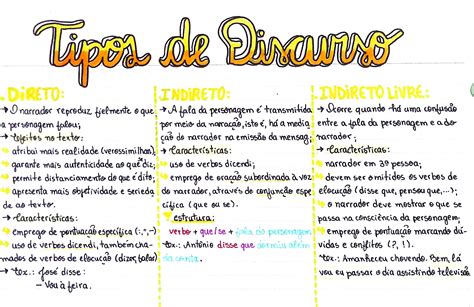 Tipos de Discurso
DIRETO:
→ O narrador reproduz fielmente o que
a personagem falou;
→ Efeitos no texto:
atribui mais realidade (verossimilhança);
garante mais autenticidade ao que diz;
permite distanciamento do que é dito;
apresenta mais objetividade e serieda
de ao texto.
→ Características:
emprego de pontuação específica (:,"-)
uso de verbos dicendi, também cha-
mados de verbos de elocução (dizer, falar)
→ Ex.: José disse:
- Vou à feira.
INDIRETO:
→ A fala da personagem é transmitida
por meio da narração, isto é, há a media
ção do narrador na emissão da mensag;
→ Características:
uso de verbos dicendi;
emprego de oração subordinada à voz
do narrador, através de conjunção espe
cífica (que ou se).
estrutura:
verbo + que/se + fala do personagem
Ex.: Antônio disse que dormiu além
da conta.
INDIRETO LIVRE:
→ Ocorre quando há uma confusão
entre a fala da personagem e a do
narrador;
→ Características:
narrador em 3ª pessoa;
devem ser omitidos os verbos de
elocução (disse que, pensou que,...);
o narrador deve mostrar o que se
passa na consciência da personagem;
emprego de pontuação marcando dú-
vidas e conflitos (?, !).
Ex.: Amanheceu chovendo. Bem, lá
vou eu passar o dia assistindo televisão